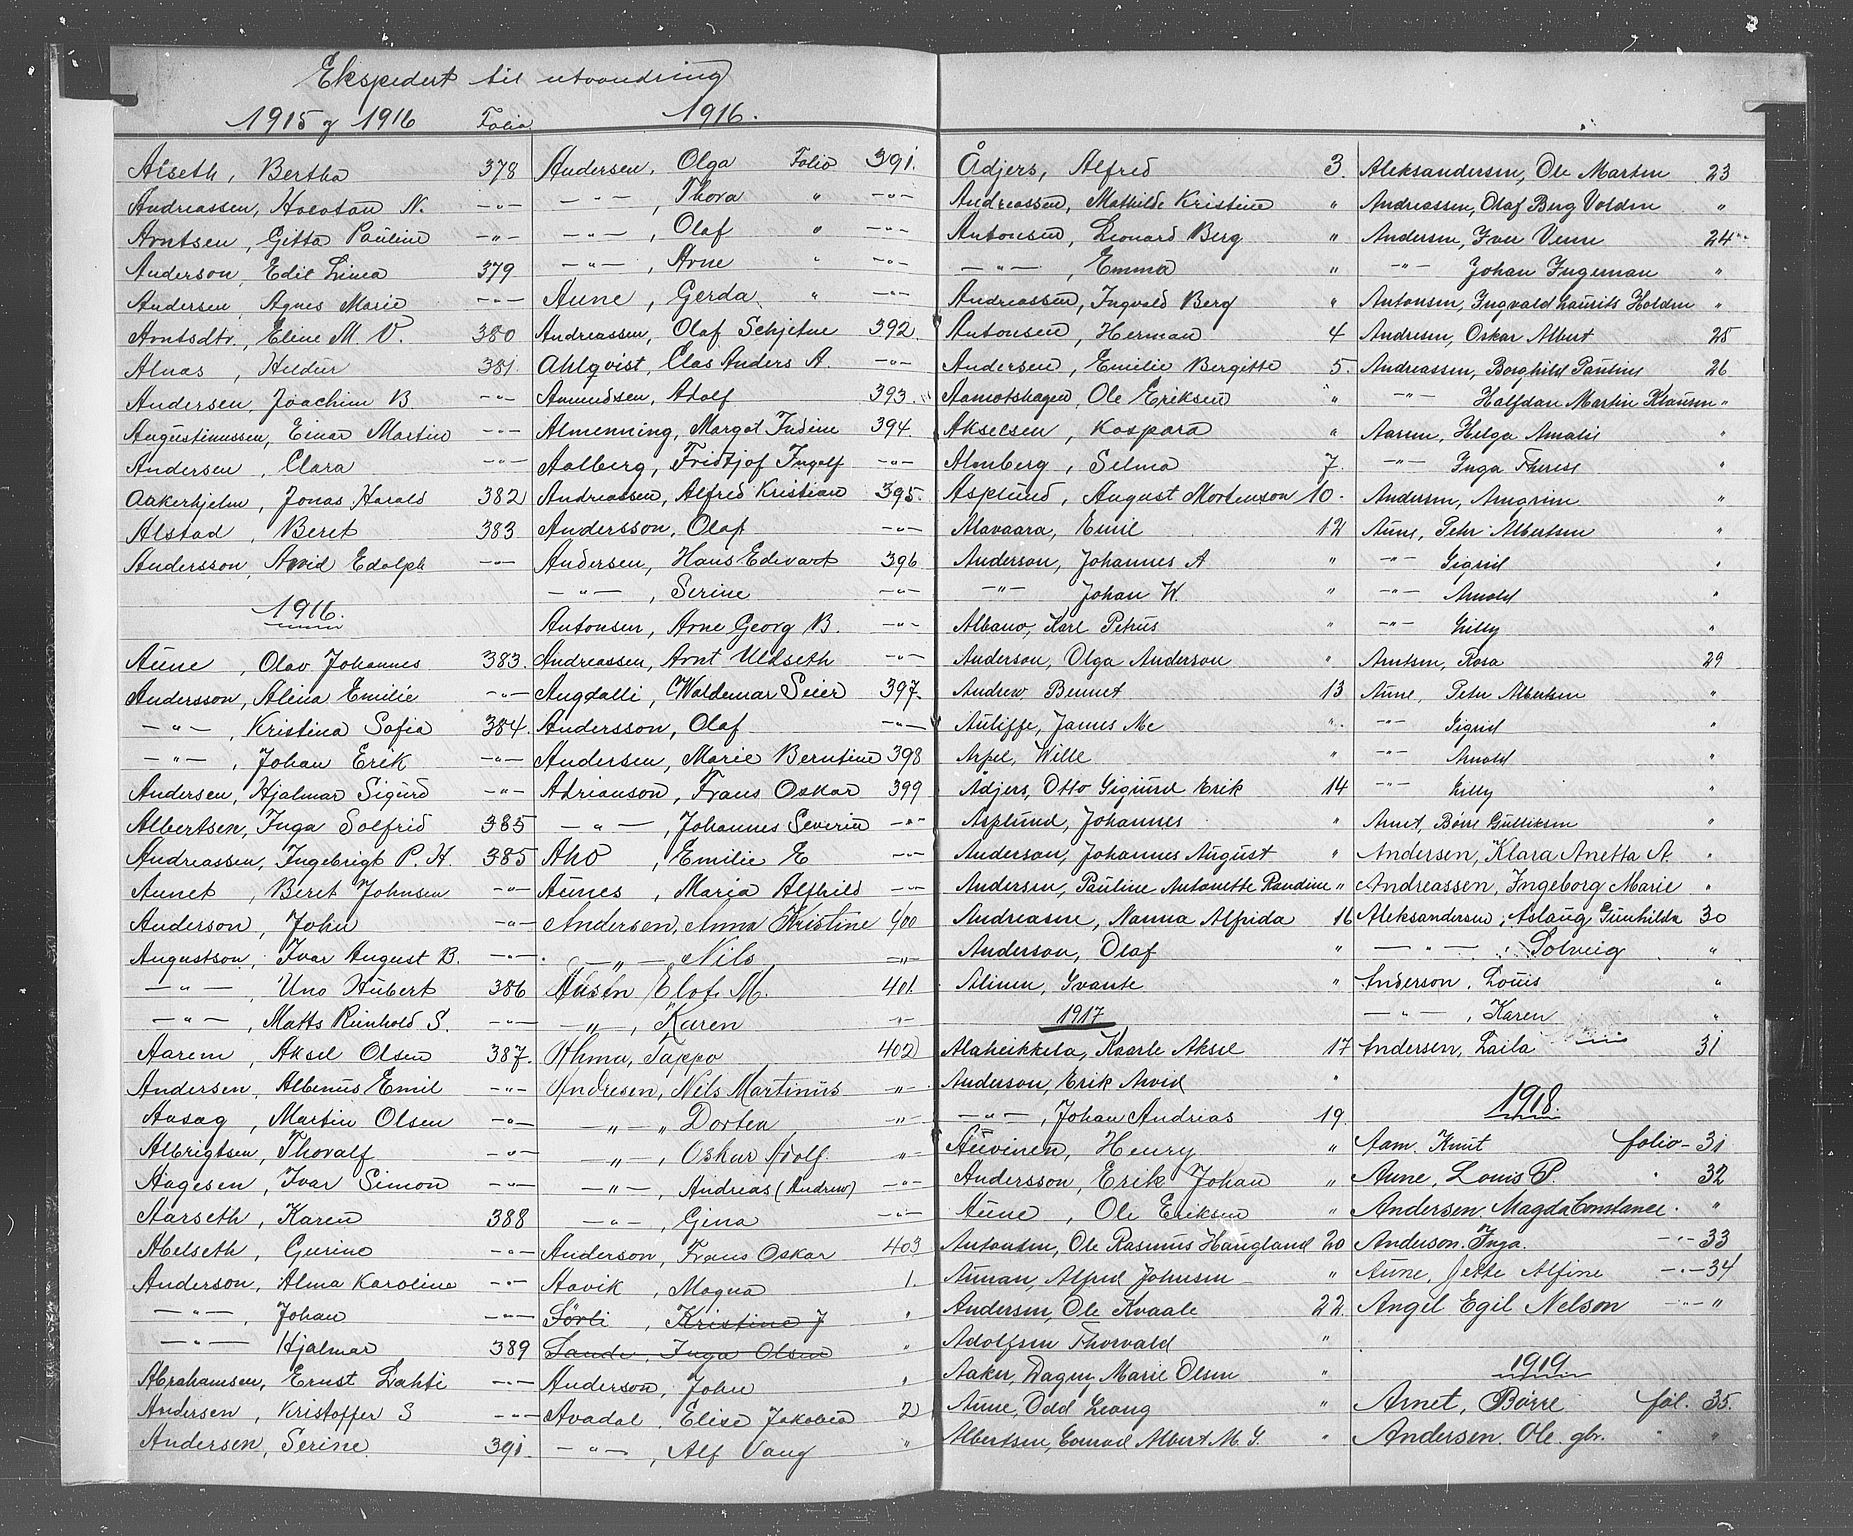 Ekspedert til utvandring
1915 og 1916 Folio
Alseth, Bertha 378
Andreassen, N. -"-
Arntsen, Gitta Pauline -"-
Anderson, Edit Linea 379
Andersen, Agnes Marie -"-
Arntsdtr., Eline M. V. 380
Alnas, Hildur 381.
Andersen, Joachim B. -"-
Augustinussen, Einar Martin -"-
Andersen, Clara -"-
Aakerhjelm, Jonas Harald 382
Alstad, Beret 383
Andersson, Arvid Edolph -"-
1916.
Aune, Olav Johannes 383.
Andersson, Alina Emilie -"-
-"-, Kristina Sofia 384.
-"-, Johan Erik -"-
Andersen, Hjalmar Sigurd -"-
Albertsen, Inga Solfrid 385
Andreassen, Ingebrigt P. H. 385
Aunet, Beret Johnsen -"-
Anderson, John -"-
Augustson, Ivar August B. -"-
-"-, Uno Hubert 386
-"-, Matts Reinhold S. -"-
Aarem, Aksel Olsen 387.
Andersen, Albinus Emil -"-
Aasag, Martin Olsen -"-
Albrigtsen, Thoralf -"-
Aagesen, Ivar Simon -"-
Aarseth, Karen 388
Abelseth, Gurine -"-
Anderson, Alma Karoline -"-
-"-, Johan -"-
-"- Hjalmar 389
Abrahamsen, Ernst Lahti -"-
Andersen, Kristoffer S -"-
Andersen, Serine 391.
1916.
Andersen, Olga Folio 391.
-"-, Thora " -"-
-"-, Olaf " -"-
-"-, Arne " -"-
Aune, Gerda " -"-
Andreassen, Olaf Schjetne 392.
Ahlqvist, Clas Anders A. -"-
Aamundsen, Adolf 393.
Almenning, Margot Indine 394.
Aalberg, Fridtjof Ingolf -"-
Andreassen, Alfred Kristian 395.
Andersson, Olaf -"-
Andersen, Hans Edevart 396
-"-, Serine -"-
Antonsen, Arne Georg B. -"-
Andreassen, Arnt Uldseth -"-
Angdalli, Waldemar Seier 397.
Andersson, Olaf -"-
Andersen, Marie Berntine 398
Adrianson, Frans Oskar 399
-"-, Johannes Severin -"-
Aho, Emilie E -"-
Aunes, Maria Alfhild -"-
Andersen, Anna Kristine 400
-"- Nils -"-
Ahsén Elof M. 401.
-"-, Karen -"-
Ahma, Tappo 402
Andresen, Nils Martinus -"-
-"- " Dortea -"-
-"-, Oskar Adolf. -"-
-"-, Andreas (Andrew) -"-
-"-, Gina -"-
Anderson, Frans Oskar 403
Aavik, Magna 1.
Sørli, Kristine J "
Sande, Inga Olsen "
Anderson, John "
Avadal, Elise Jakobea 2
-"-, Alf Vaug "
Ådjers, Alfred 3.
Andreassen, Mathilde Kristine "
Antonsen, Leonard Berg "
-"-, Emma "
Andreassen, Ingvald Berg "
Antonsen, Herman 4
Andersen, Emilie Bergitte 5.
Aamotshagen, Ole Eriksen "
Akselsen, Kaspara "
Almberg, Selma 7.
Asplund, August Mortenson 10.
Alavaara, Emil 12
Anderson, Johannes A "
-"- Johan W. "
Albano, Karl Petrus "
Anderson, Olga Anderson "
Andrew Bennet 13
Auliffe, James Mc "
Arpel, Wille "
Ådjers, Otto Sigurd Erik 14
Asplund, Johannes "
Anderson, Johannes August "
Andersen, Pauline Antonette Randine "
Andreasne, Nanna Alfrida 16
Anderson, Olaf "
Alinen, Svante "
1917
Alaheikkela, Kaarle Aksel 17
Anderson, Erik Arvid "
-"-, Johan Andrias 19.
Auvinen, Henry "
Andersson, Erik Johan "
Aune, Ole Eriksen "
Antonsen, Ole Rasmus Haugland 20
Aunan, Alfred Johnsen "
Andersen, Ole Kvaale 22.
Adolfsen Thorvald "
Aaker, Dagny Marie Olsen "
Aune, Odd Leang "
Albertsen, Conrad Albert M. G. "
Aleksandersen, Ole Martin 23
Andreassen, Olaf Berg Volden "
Andersen, Iver Venn 24
-"- Johan Ingeman "
Antonsen, Ingvald Laurits Holden "
Andresen, Oskar Albert 25
Andreassen, Borghild Pauline 26
-"- Halfdan Martin Klausen "
Aarem, Helga Amalie "
-"- Inga Therese "
Andersen, Arngrim "
Aune, Petr Albertsen "
-"- Sigrid "
-"- Arnold "
-"- Lilly "
Arntsen, Rosa 29
Aune, Petr Albertsen "
-"- Sigrid "
-"- Arnold "
-"- Lilly "
Arnet, Børre Gulliksen "
Andersen, Klara Anetta A. "
Andreassen, Ingeborg Marie "
Aleksandersen, Aslaug Gunhilda 30
-"-, Solveig "
Anderson, Louis "
-"-, Karen "
Andersen, Laila 31
1918.
Aam. Knut folio- 31
Aune, Louis P. " 32
Andersen, Magda Constance. "
Anderson. Inga. -"- 33
Aune, Jette Alfine -"- 34
Angel Egil Nelson -"- "
1919
Arnet, Børre fol. 35.
Andersen. Ole gbr. " "